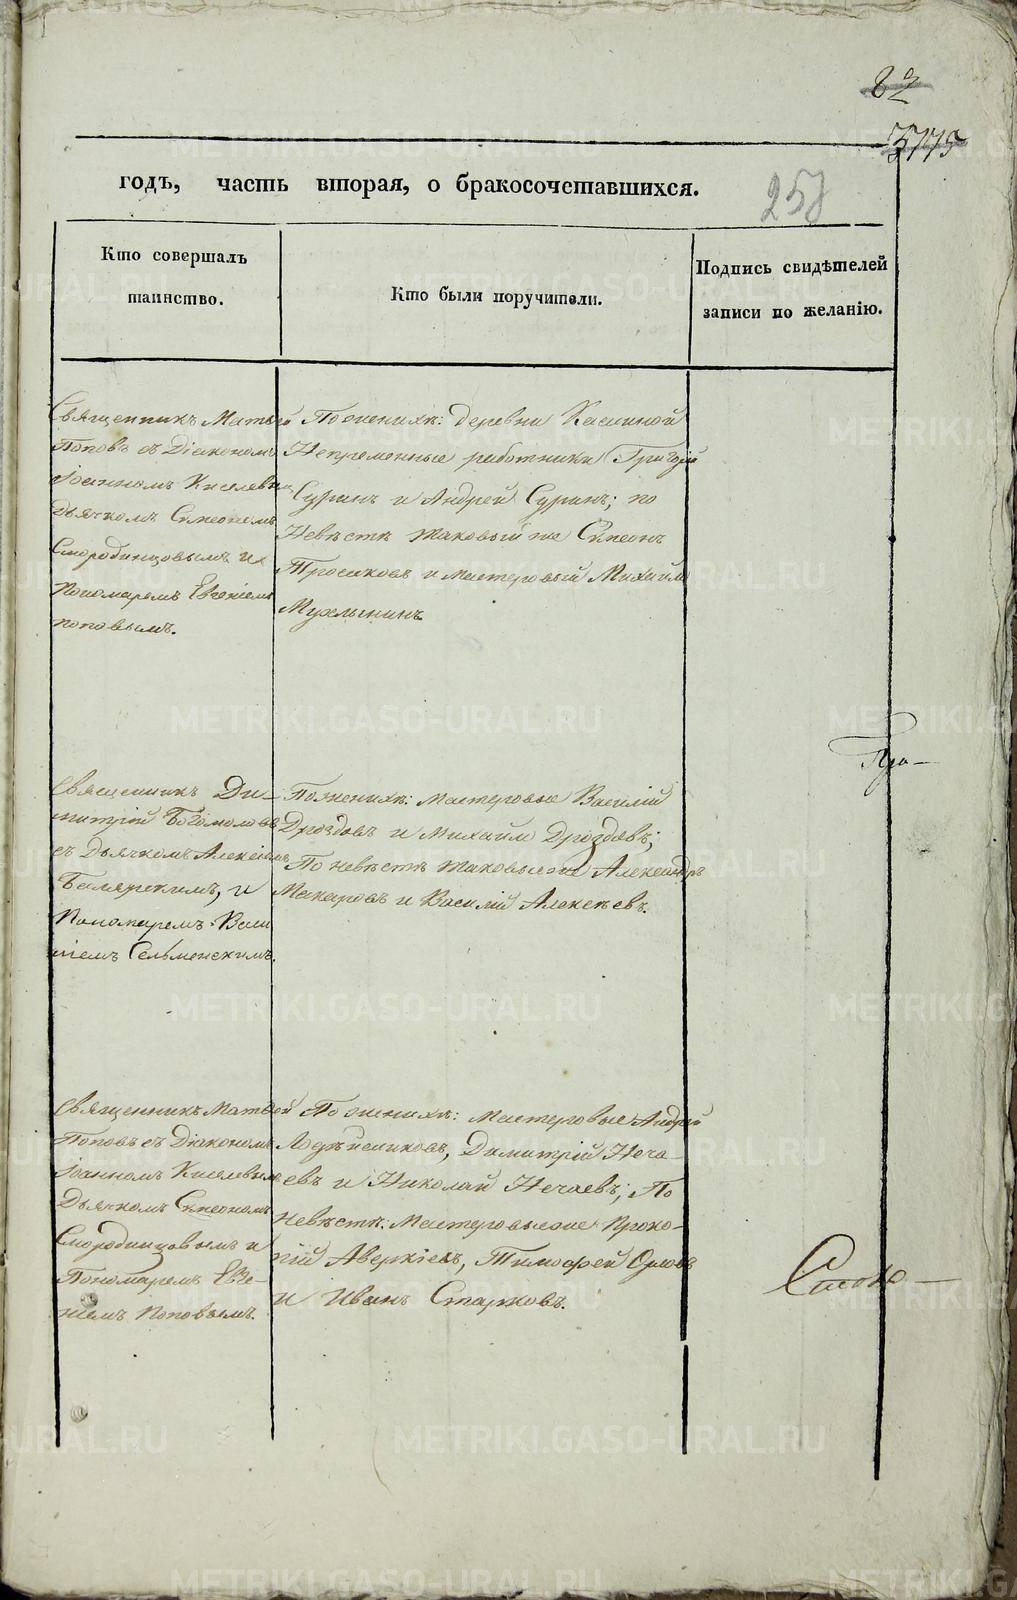 87
3773
годъ, часть вторая, о бракосочетавшихся.
257
Кто совершалъ
таинство.
Кто были поручители.
Подпись свидѣтелей
записи по желанію.
Священникъ Матвей
Поповъ съ Діакономъ
Іоанномъ Киселевымъ
Дьячкомъ Симеономъ
Смородинцовымъ и
Пономаремъ Евгеніемъ
Поповымъ.
По женихѣ: деревни Касиной
Непременные работники Григорій
Суринъ и Андрей Суринъ; по
Невѣстѣ таковый же Симеонъ
и мастеровый Михайло
Мухлынинъ
Священникъ Ди-
митрій Богомоловъ
съ Дьячкомъ Алексіемъ
и
Пономаремъ Васи
ліемъ Сельменскимъ.
По женихѣ: Мастеровые Василій
Дроздовъ и Михайло Дроздовъ;
По невѣстѣ таковые же Александръ
Макаровъ и Василій Алексѣевъ.
Священникъ Матвей
Поповъ съ Діакономъ
Іоанномъ Киселевымъ
Дьячкомъ Симеономъ
Смородинцовымъ и
Пономаремъ Евге-
ніемъ Поповымъ.
По женихѣ: Мастеровые Андрей
Димитрій Неча-
евъ и Николай Нечаевъ; По
Невѣстѣ: Мастеровые же Проко-
пій Аверкіевъ, Тимофей Орловъ
и Иванъ Старковъ.
METRIKI.GASO-URAL.RU